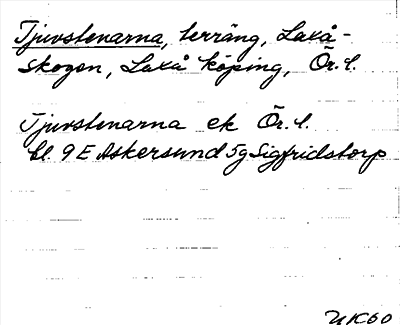 Tjuvstenarna, terräng, Laxå-
skogen, Laxå köping, Ör. l.
Tjuvstenarna ek Ör. l.
bl. 9 E Askersund 5g Sigfridstorp
UK60